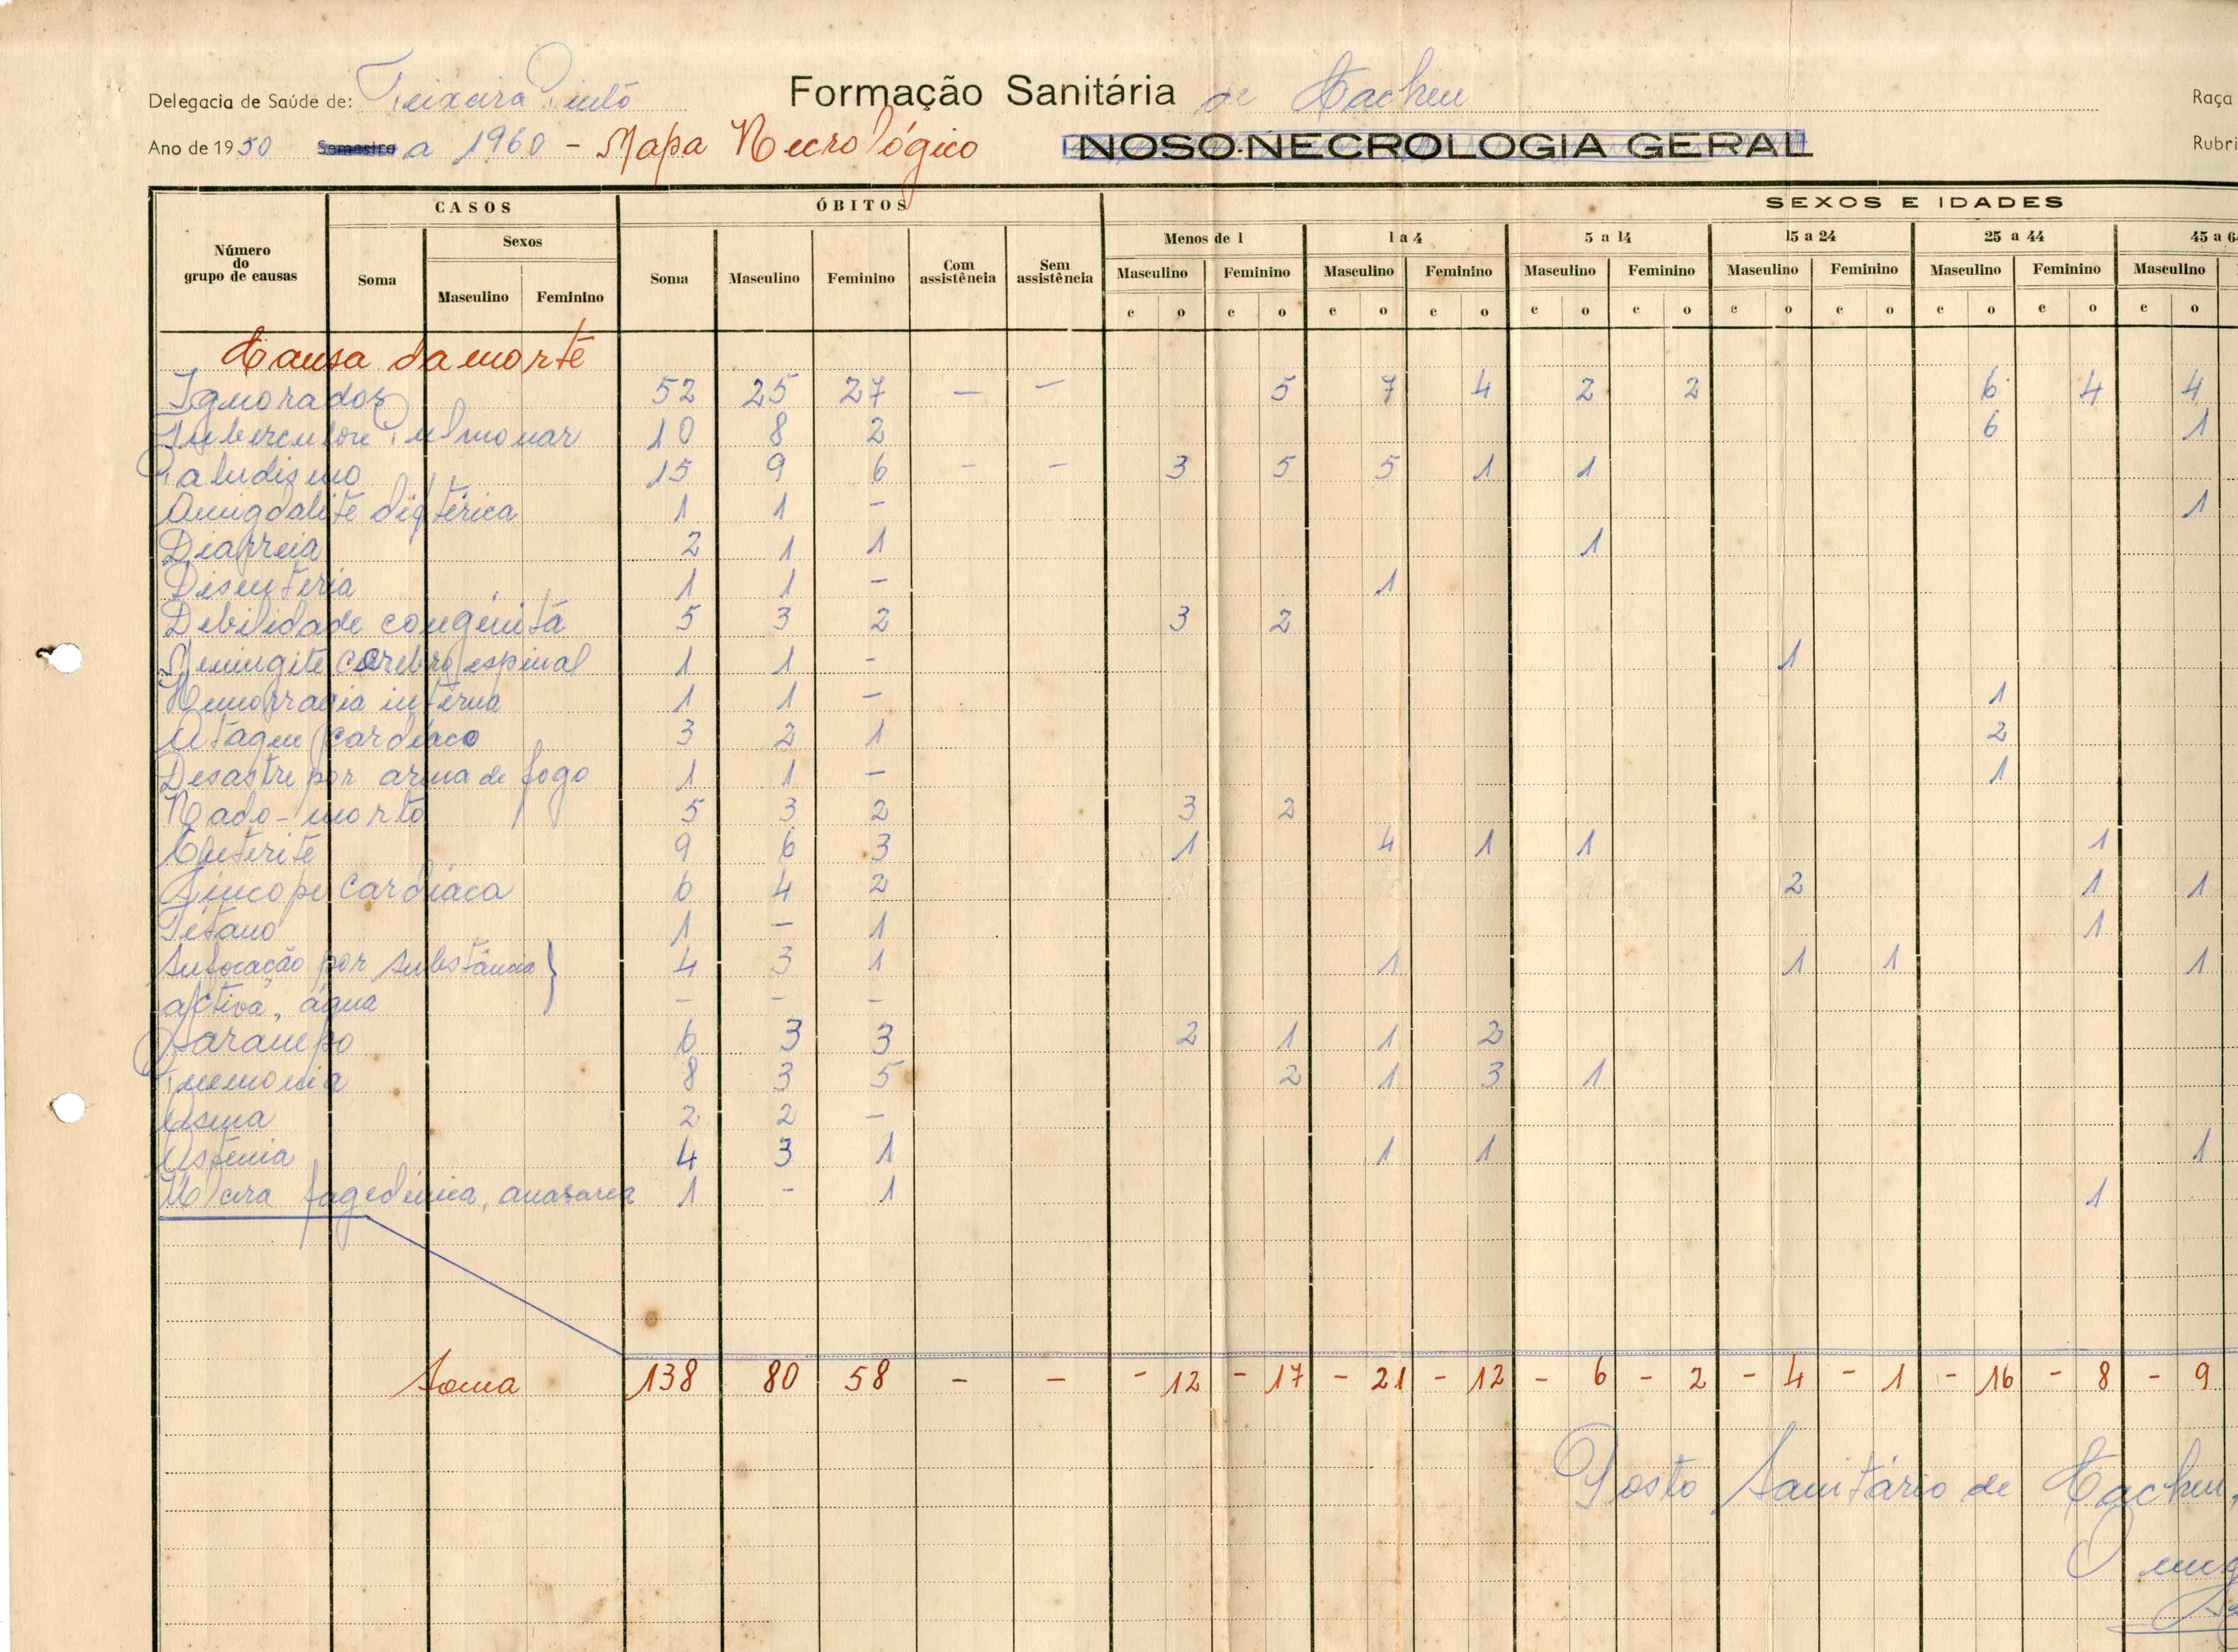 Delegacia de Saúde de: Teixeira Pinto Formação Sanitária de Cacheu Raça
Ano de 1950 Semestre a 1960 - Mapa Necrológico NOSO-NECROLOGIA GERAL Rubri
CASOS ÓBITOS SEXOS E IDADES
Número do grupo de causas Soma Sexos Masculino Feminino Soma Masculino Feminino Com assistência Sem assistência Menos de 1 1 a 4 5 a 14 15 a 24 25 a 44 45 a 6
Masculino Feminino Masculino Feminino Masculino Feminino Masculino Feminino Masculino Feminino Masculino
c o c o c o c o c o c o c o c o c o c o c o
Causa da morte
Ignorados 52 25 27 — — 5 7 4 2 2 6 4 4
Tuberculose Pulmonar 10 8 2 6 1
Paludismo 15 9 6 - - 3 5 5 1 1
Amigdalite diftérica 1 1 - 1
Diarreia 2 1 1 1
Disenteria 1 1 - 1
Debilidade congénita 5 3 2 3 2
Meningite cerebro espinal 1 1 - 1
Hemorragia interna 1 1 - 1
Ataque cardíaco 3 2 1 2
Desastre por arma de fogo 1 1 - 1
Nado-morto 5 3 2 3 2
Enterite 9 6 3 1 4 1 1 1
Síncope Cardíaca 6 4 2 2 1 1
Tétano 1 - 1 1
Sufocação por substância 4 3 1 1 1 1 1
activa, água - - -
Sarampo 6 3 3 2 1 1 2
Pnemonia 8 3 5 2 1 3 1
Asma 2 2 -
Astenia 4 3 1 1 1 1
Úlcera fagedénica, anasarca 1 - 1 1
Soma 138 80 58 - - - 12 - 17 - 21 - 12 - 6 - 2 - 4 - 1 - 16 - 8 - 9
Posto Sanitário de Cacheu,